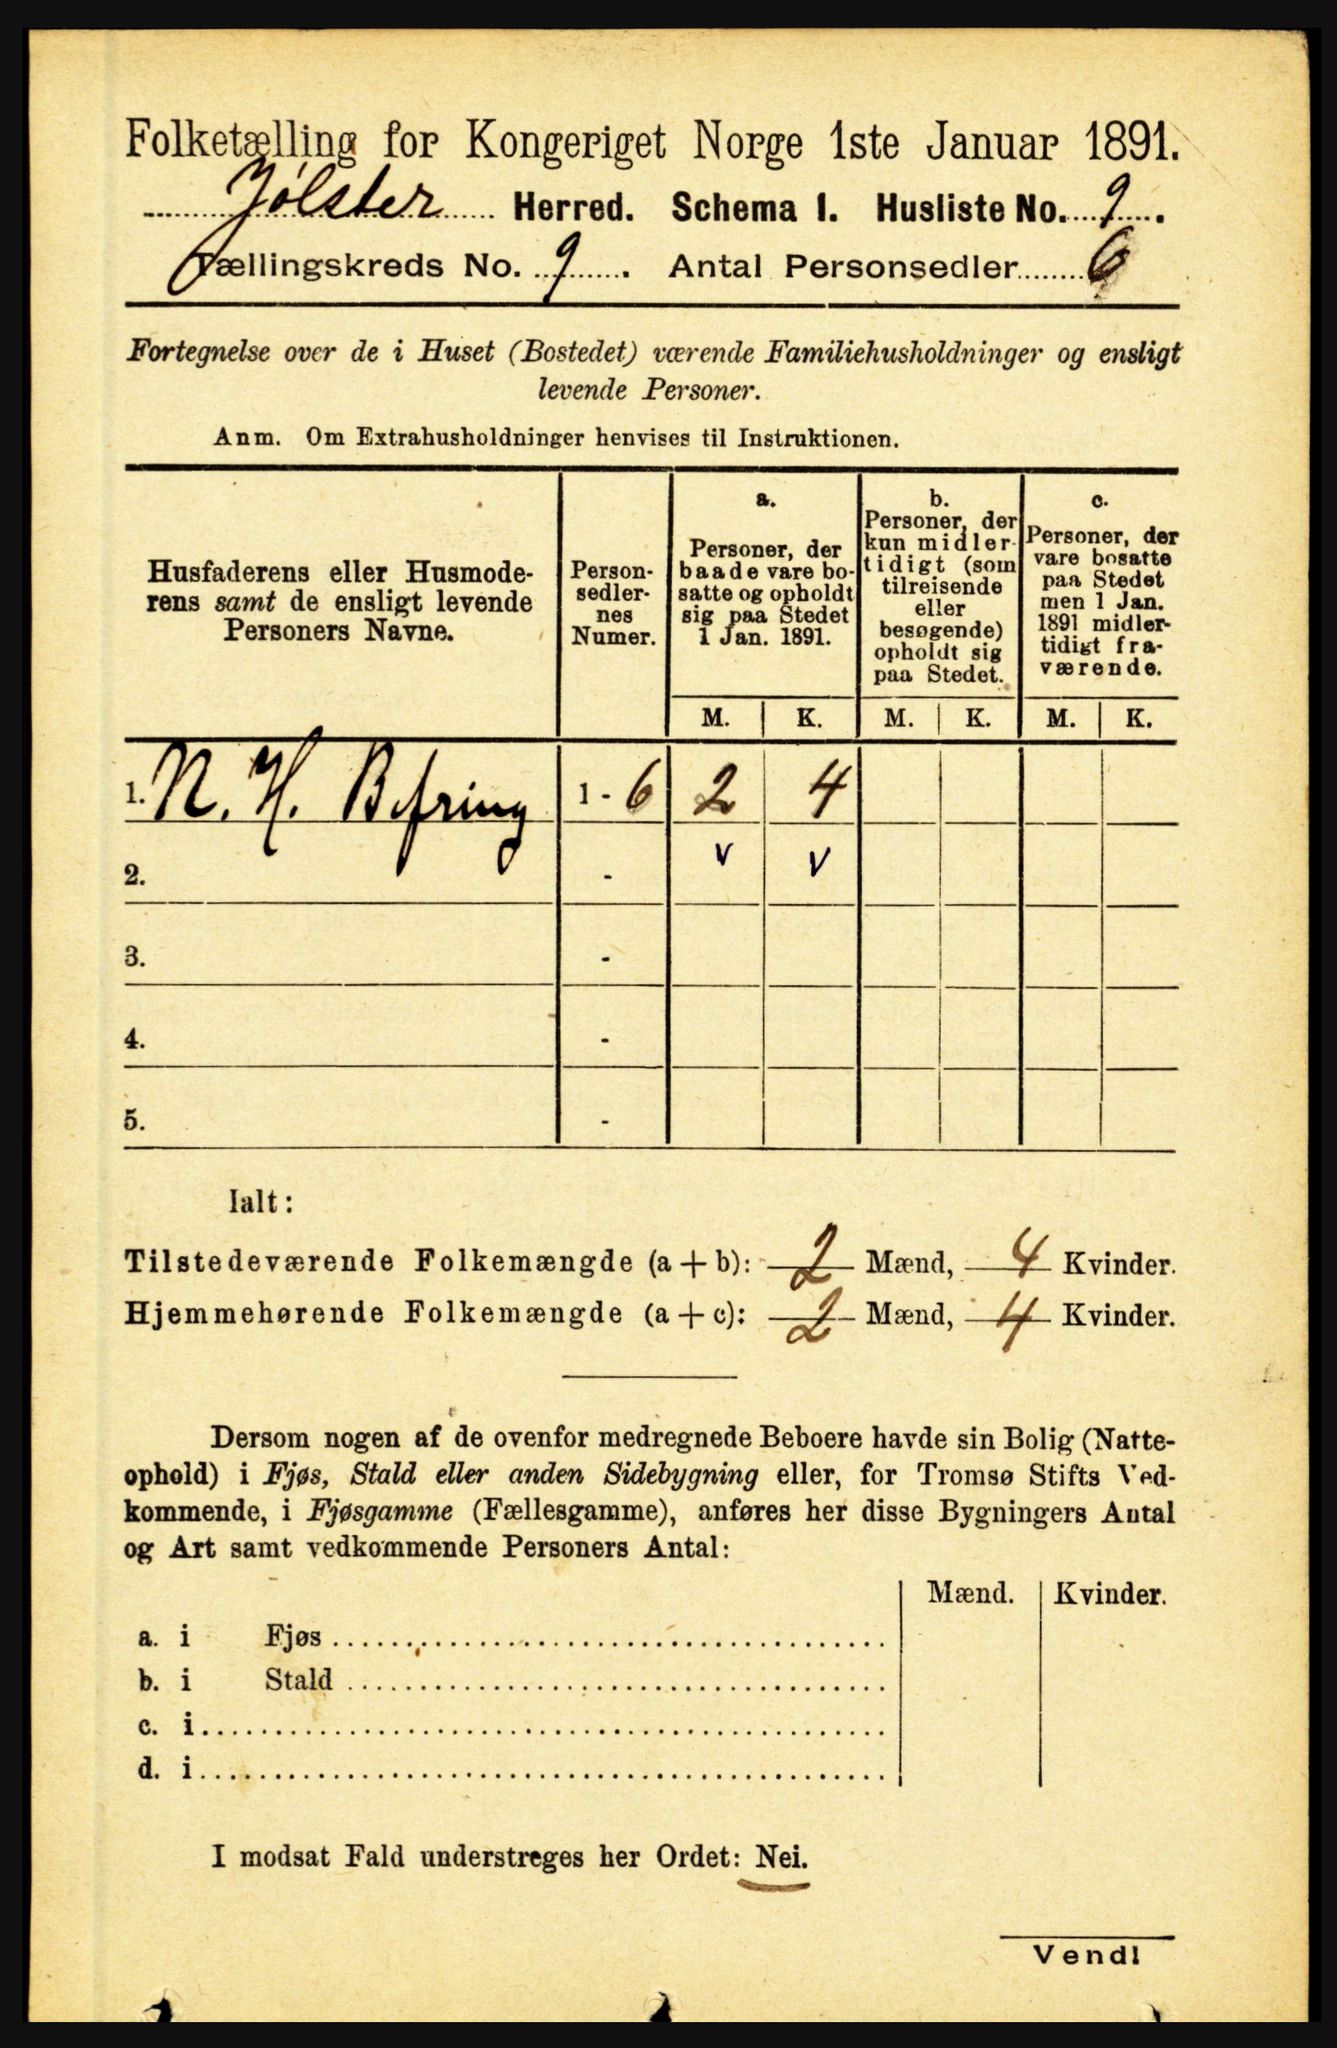 Folketælling for Kongeriget Norge 1ste Januar 1891.
Jølster Herred. Schema I. Husliste No. 9.
Tællingskreds No. 9. Antal Personsedler 6
Fortegnelse over de i Huset (Bostedet) værende Familiehusholdninger og ensligt
levende Personer.
Anm. Om Extrahusholdninger henvises til Instruktionen.
Husfaderens eller Husmode-
rens samt de ensligt levende
Personers Navne.
Person-
sedler-
nes
Numer.
a.
Personer, der
baade vare bo-
satte og opholdt
sig paa Stedet
1 Jan. 1891.
b.
Personer, der
kun midler-
tidigt (som
tilreisende
eller
besøgende)
opholdt sig
paa Stedet.
c.
Personer, der
vare bosatte
paa Stedet
men 1 Jan.
1891 midler-
tidigt fra-
værende.
M. K. M. K. M. K.
1. N. H. Befring 1 - 6 2 4
2. - v v
3. -
4. -
5. -
Ialt:
Tilstedeværende Folkemængde (a + b): 2 Mænd, 4 Kvinder.
Hjemmehørende Folkemængde (a + c): 2 Mænd, 4 Kvinder.
Dersom nogen af de ovenfor medregnede Beboere havde sin Bolig (Natte-
ophold) i Fjøs, Stald eller anden Sidebygning eller, for Tromsø Stifts Ved-
kommende, i Fjøsgamme (Fællesgamme), anføres her disse Bygningers Antal
og Art samt vedkommende Personers Antal:
Mænd. Kvinder.
a. i Fjøs
b. i Stald
c. i
d. i
I modsat Fald understreges her Ordet: Nei.
Vend!